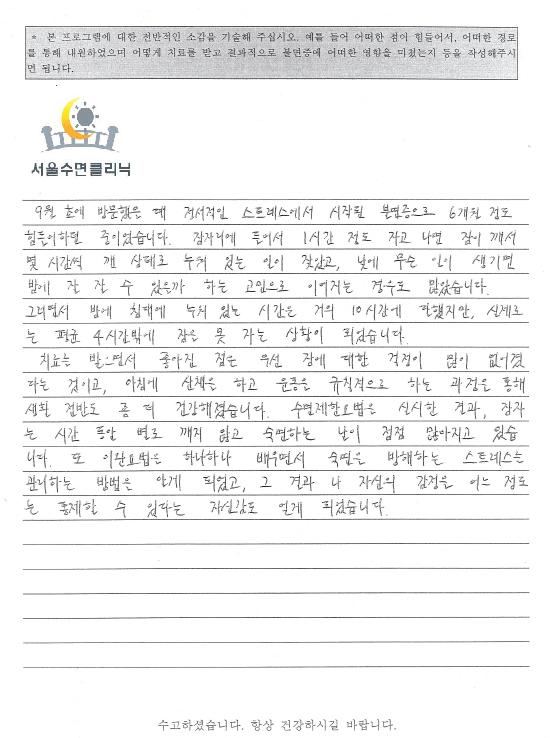 * 본 프로그램에 대한 전반적인 소감을 기술해 주십시오. 예를 들어 어떠한 점이 힘들어서, 어떠한 경로
를 통해 내원하였으며 어떻게 치료를 받고 결과적으로 불면증에 어떠한 영향을 미쳤는지 등을 작성해주시
면 됩니다.
서울수면클리닉
9월 초에 방문했을 때 정서적인 스트레스에서 시작된 불면증으로 6개월 정도
힘들어하던 중이었습니다. 잠자리에 들어서 1시간 정도 자고 나면 잠이 깨서
몇 시간씩 깬 상태로 누워 있는 일이 잦았고, 낮에 무슨 일이 생기면
밤에 잘 잘 수 있을까 하는 고민으로 이어지는 경우도 많았습니다.
그러면서 밤에 침대에 누워 있는 시간은 거의 10시간에 달했지만, 실제로
는 평균 4시간밖에 잠을 못 자는 상황이 되었습니다.
치료를 받으면서 좋아진 점은 우선 잠에 대한 걱정이 많이 없어졌
다는 것이고, 아침에 산책을 하고 운동을 규칙적으로 하는 과정을 통해
생활 전반도 좀 더 건강해졌습니다. 수면제한요법을 실시한 결과, 잠자
는 시간 동안 별로 깨지 않고 숙면하는 날이 점점 많아지고 있습
니다. 또 이완요법을 하나하나 배우면서 숙면을 방해하는 스트레스를
관리하는 방법을 알게 되었고, 그 결과 나 자신의 감정을 어느 정도
는 통제할 수 있다는 자신감도 얻게 되었습니다.
수고하셨습니다. 항상 건강하시길 바랍니다.